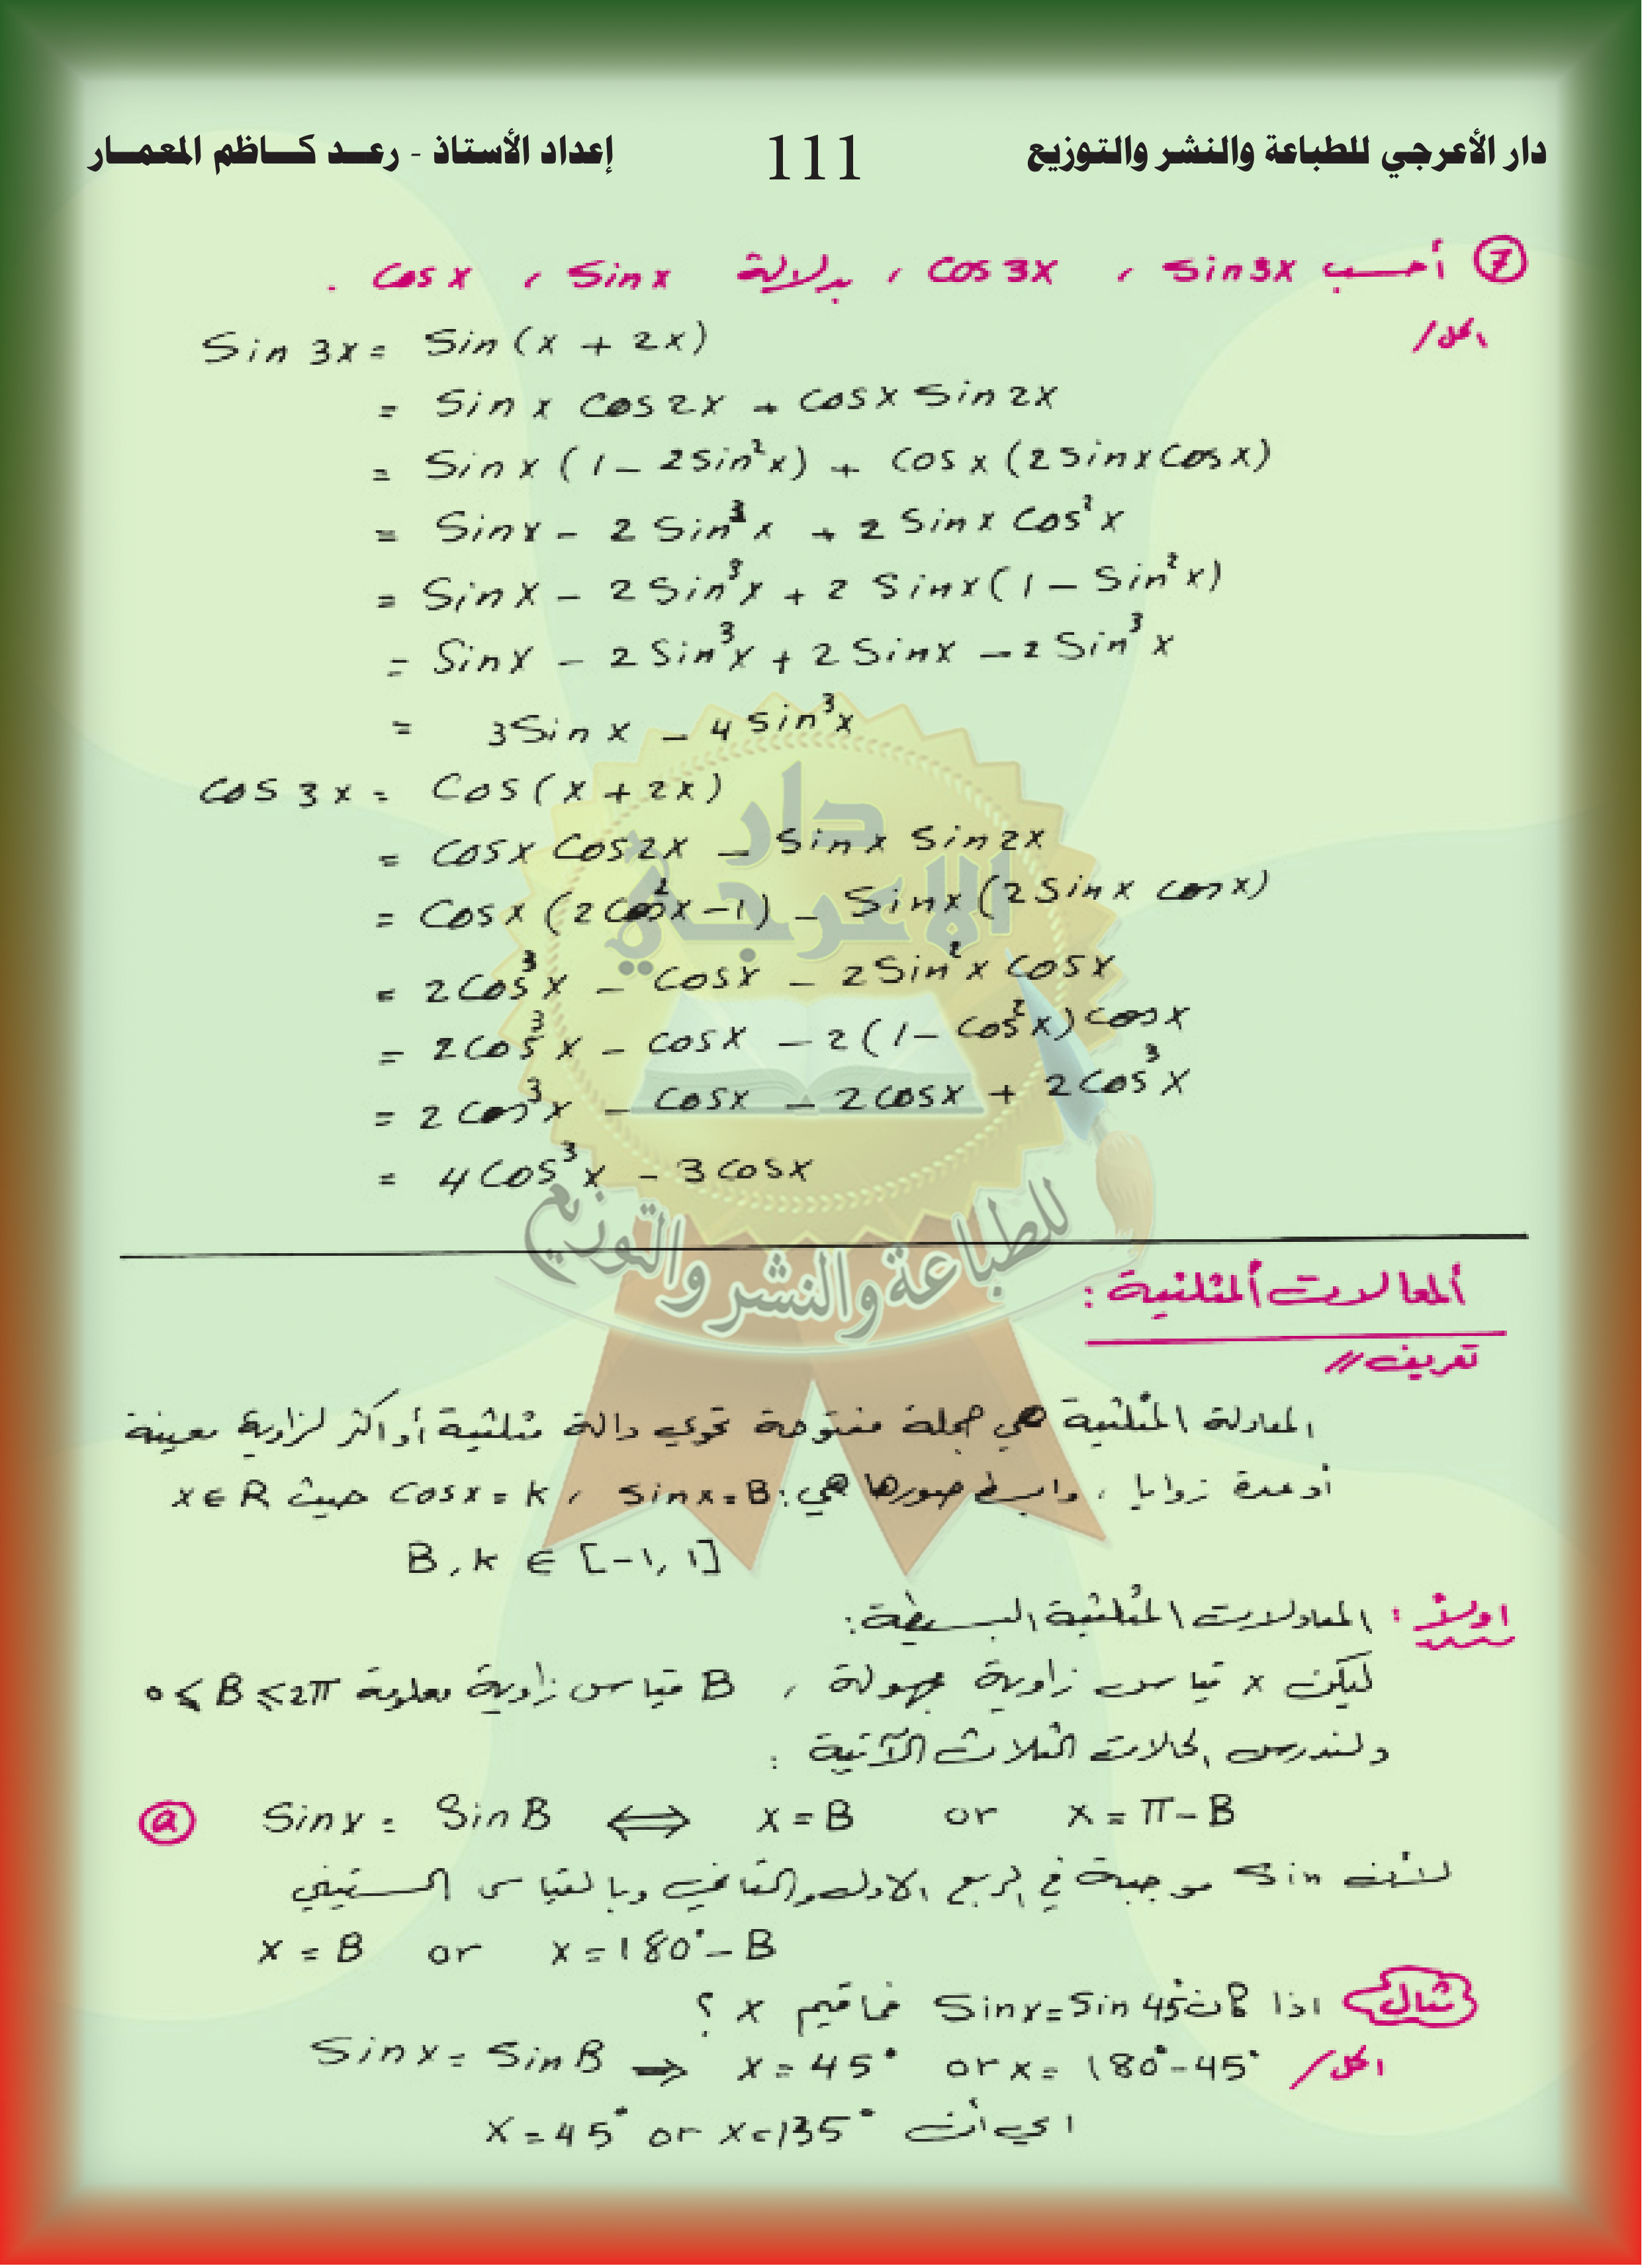 دار الأعرجي للطباعة والنشر والتوزيع 111 إعداد الأستاذ - رعد كاظم المعمار
⑦ أحسب sin3x ، cos3x ، بدلالة sinx ، cosx .
الحل/
Sin 3x = Sin (x + 2x)
= Sin x cos 2x + cos x Sin 2x
= Sin x (1 - 2Sin²x) + cos x (2Sinx cosx)
= Sinx - 2 Sin³x + 2 Sinx Cos²x
= Sinx - 2 Sin³x + 2 Sinx (1 - Sin²x)
= Sinx - 2 Sin³x + 2 Sinx - 2 Sin³x
= 3Sin x - 4 Sin³x
Cos 3x = Cos (x + 2x)
= Cosx Cos2x - Sinx Sin2x
= Cosx (2cos²x - 1) - Sinx (2Sinx cosx)
= 2Cos³x - Cosx - 2Sin²x Cosx
= 2Cos³x - Cosx - 2(1 - Cos²x) Cosx
= 2Cos³x - Cosx - 2Cosx + 2Cos³x
= 4Cos³x - 3Cosx
دار
الاعرجي
للطباعة والنشر والتوزيع
المعالات المثلثية :
تعريف //
المعادلة المثلثية هي جملة مفتوحة تحوي دالة مثلثية أو اكثر لزاوية معينة
أو عدة زوايا ، وابسط صورها هي: sinx = B ، Cosx = k حيث x ∈ R
B , k ∈ [-1, 1]
اولاً : المعادلات المثلثية البسيطة:
ليكن x قياس زاوية مجهولة ، B قياس زاوية معلومة 0 ≤ B ≤ 2π
ولندرس الحالات الثلاث الآتية :
ⓐ Sinx = SinB ⟺ x = B or x = π - B
لأن Sin موجبة في الربع الاول والثاني وبالقياس الستيني
x = B or x = 180° - B
مثال اذا كان Sinx = Sin 45° فما قيم x ؟
الحل/ Sinx = SinB ⇒ x = 45° or x = 180° - 45°
اي أن x = 45° or x = 135°